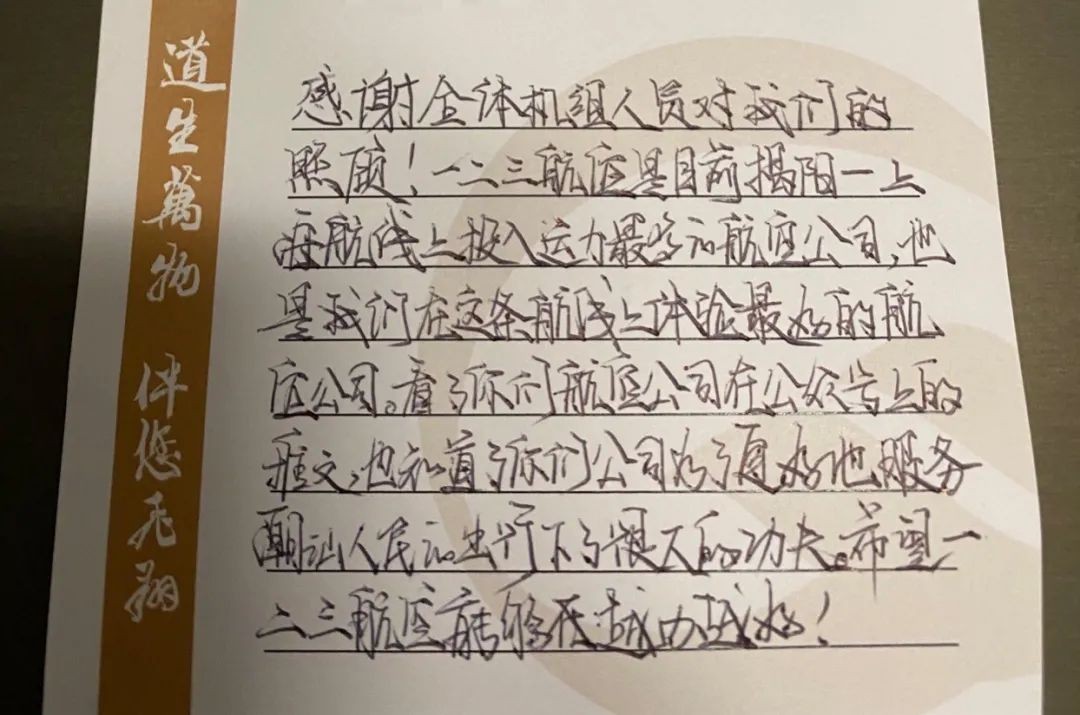 道生萬物 伴您飞翔
感谢全体机组人员对我们的
照顾！一二三航空是目前揭阳一上
海航线上投入运力最多的航空公司，也
是我们在这条航线上体验最好的航
空公司。看了你们航空公司在公众号上的
推文，也知道了你们公司为了更好地服务
潮汕人民的出行下了很大的功夫。希望一
二三航空能够在越办越好！